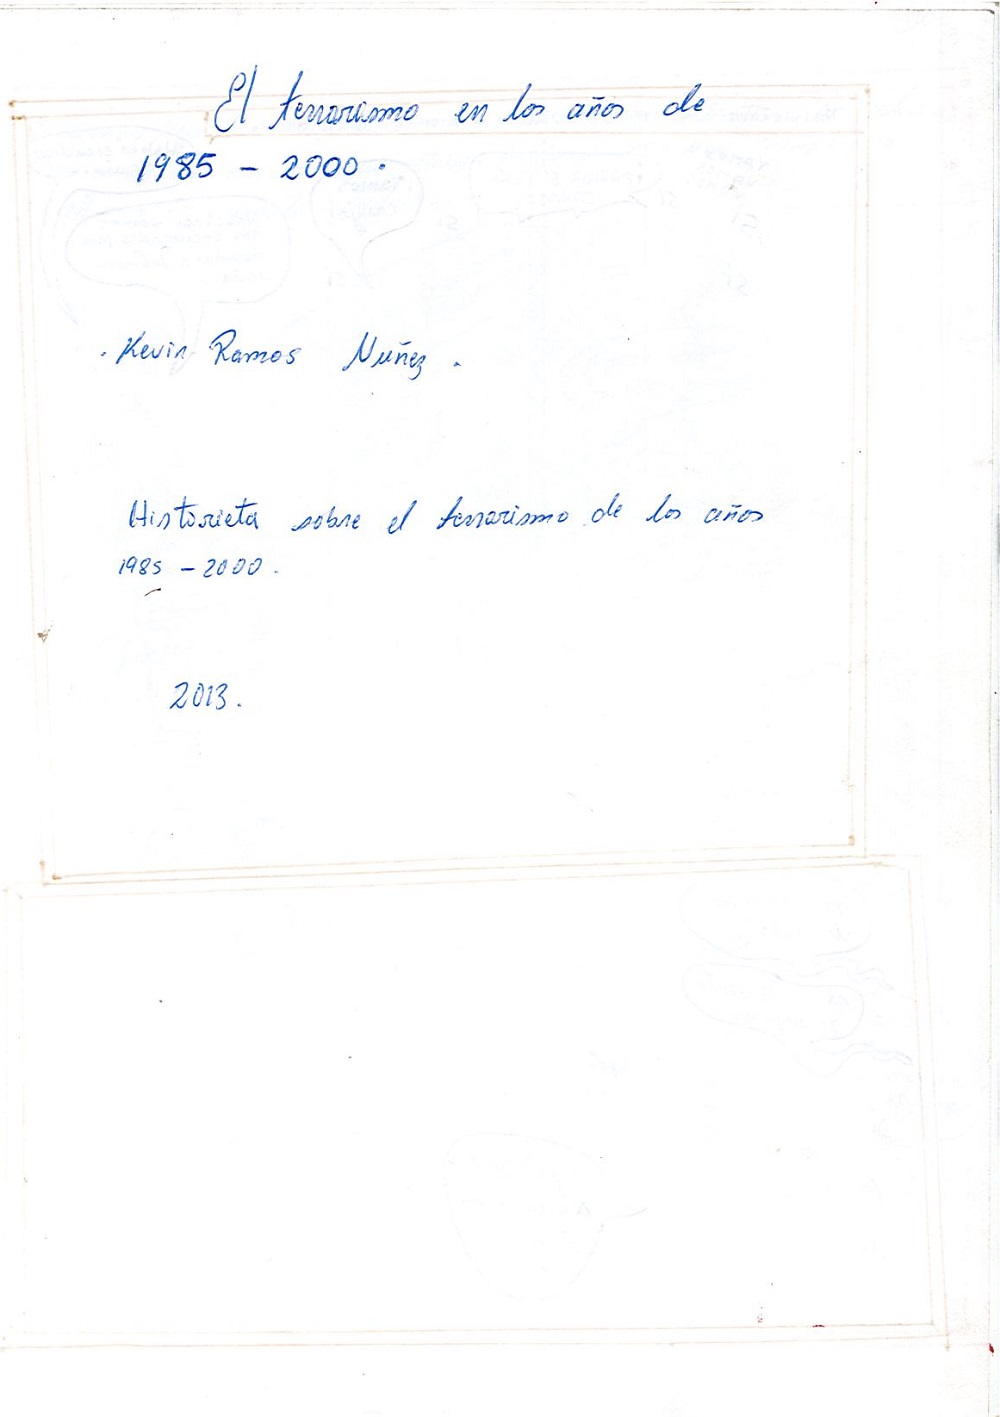 El terrorismo en los años de
1985 - 2000.
. Kevin Ramos Nuñez.
Historieta sobre el terrorismo de los años
1985 - 2000.
2013.